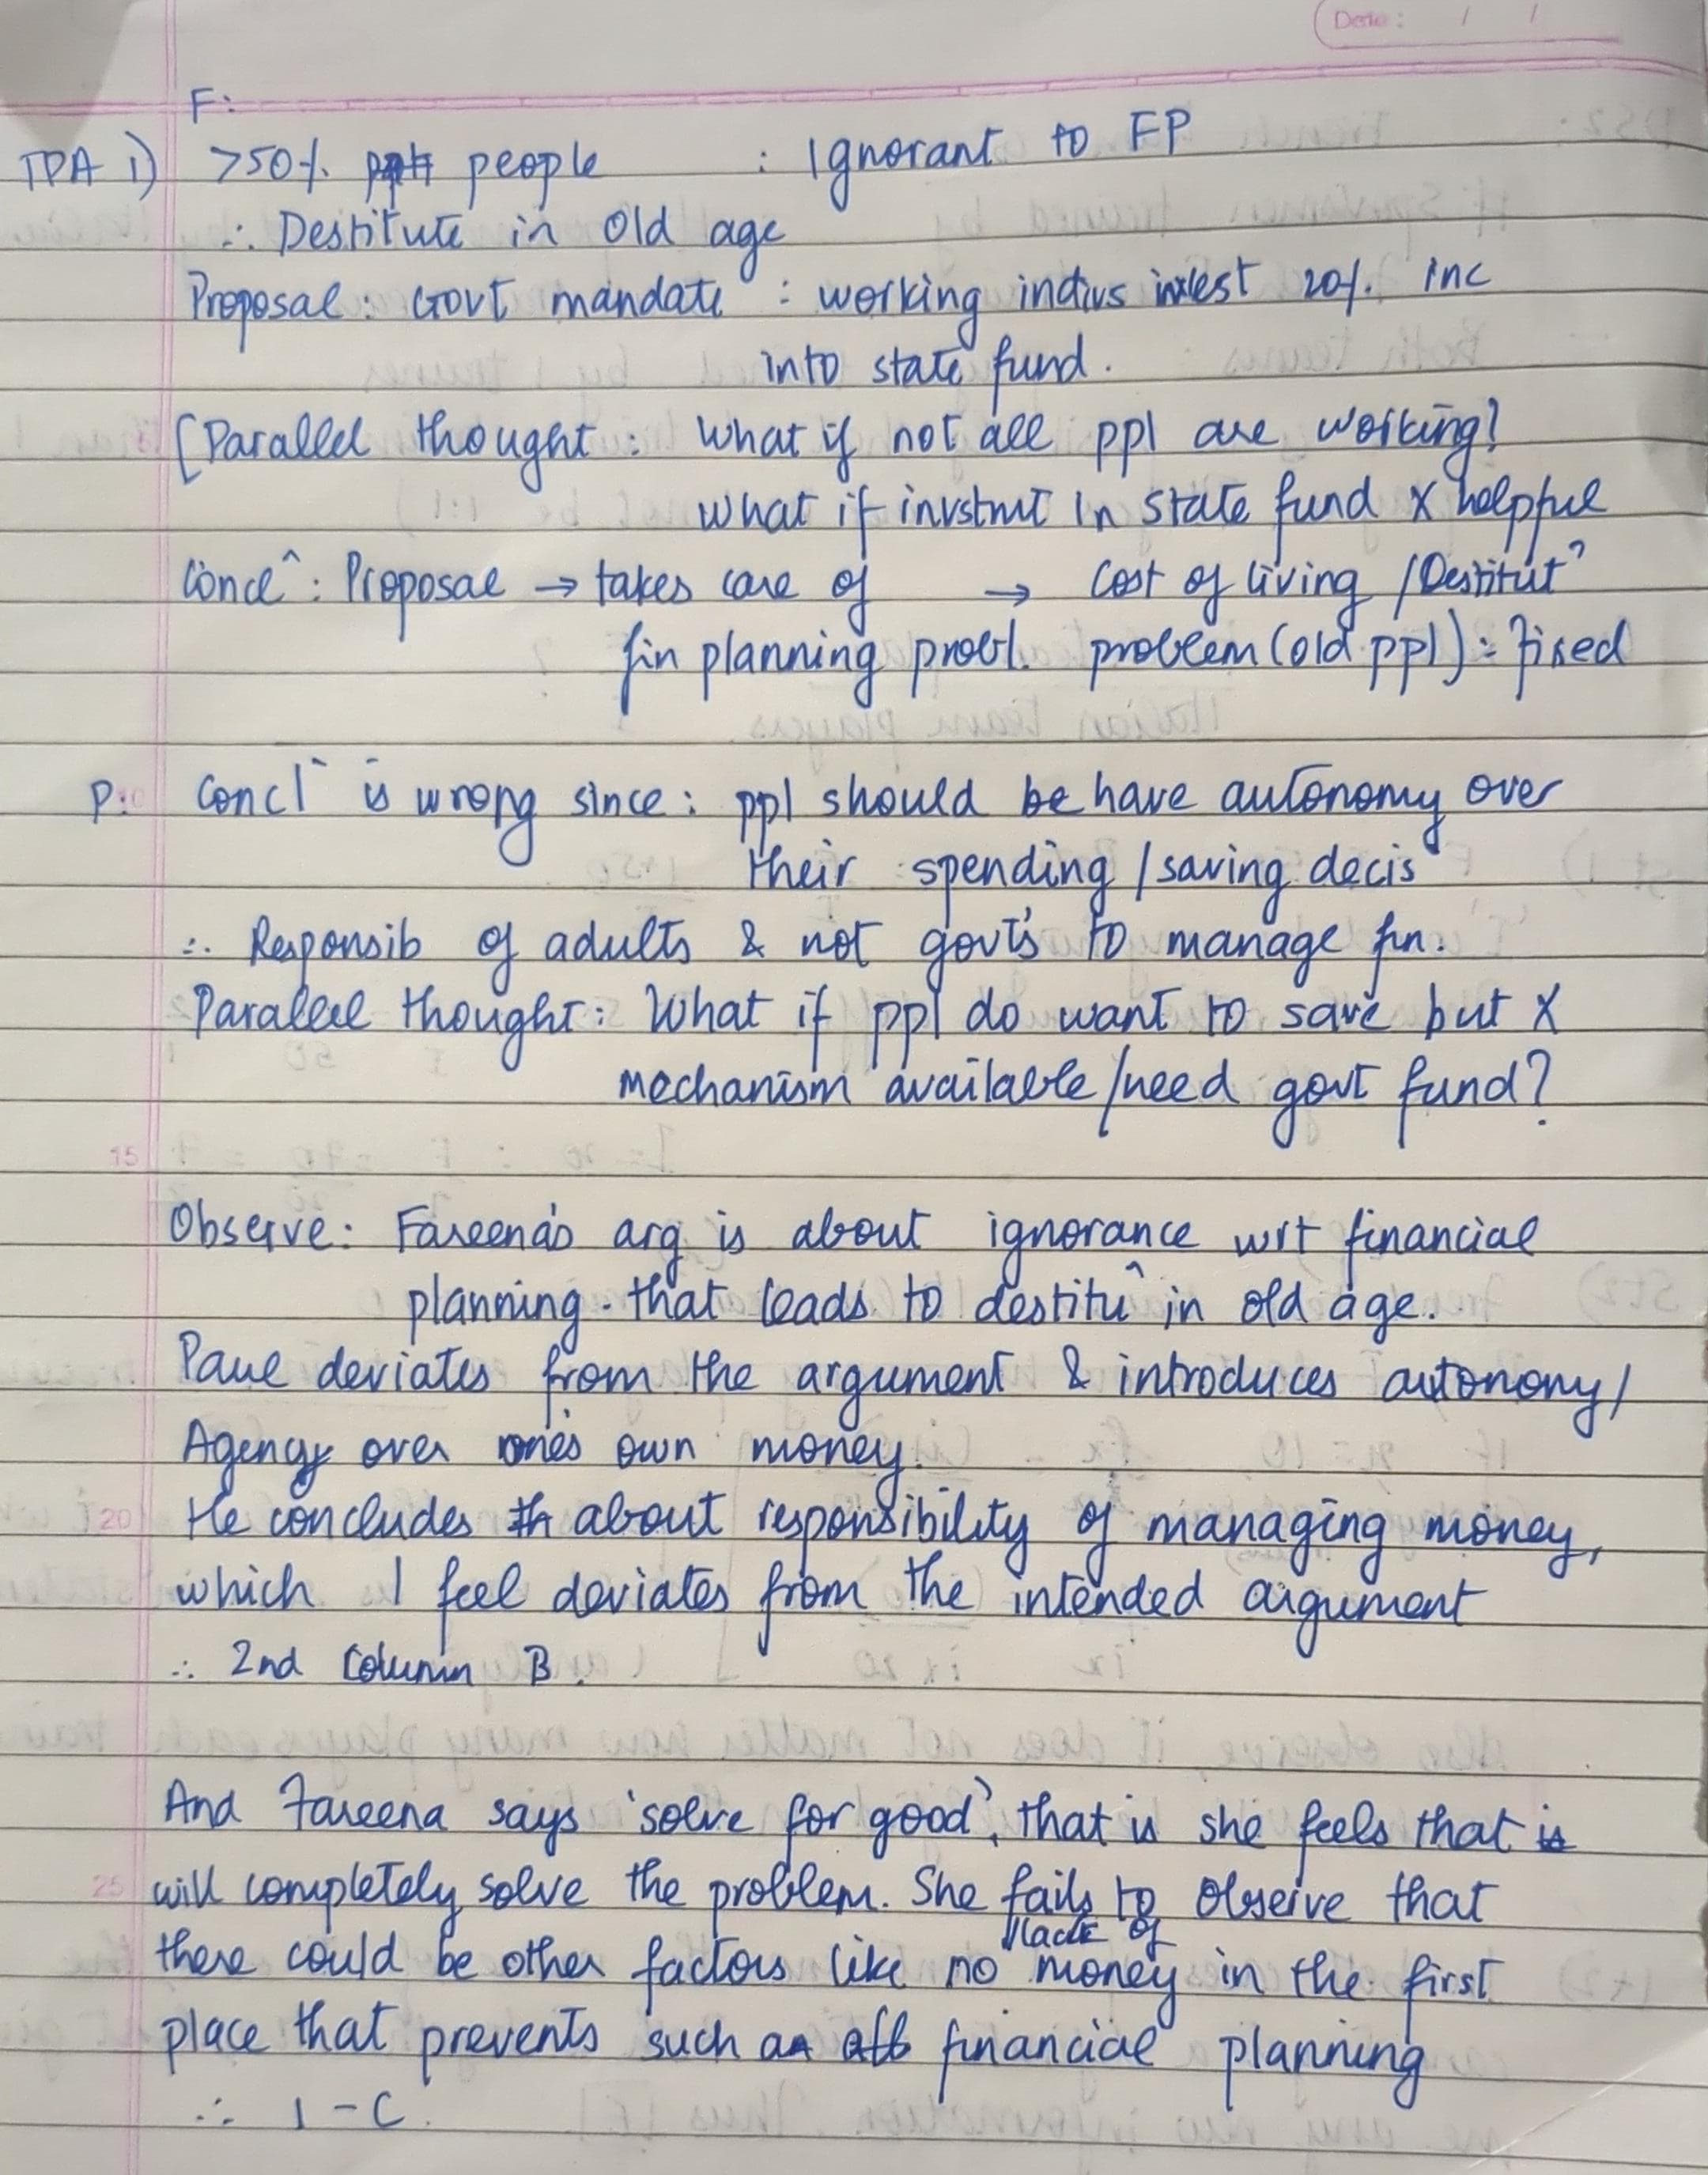 Date: / /
F:
TPA 1) >50% people : Ignorant to FP
∴ Destitute in Old age
Proposal: Govt mandate : working indivs invest 20% inc
into state fund.
[Parallel thought: What if not all ppl are working?
What if invstmt in state fund X helpful
Concl^: Proposal → takes care of → Cost of living / Destitut^
fin planning probl. problem (old ppl) : fixed
P: Concl^ is wrong since: ppl should be have autonomy over
their spending / saving decis^
∴ Responsib of adults & not govt's to manage fin.
Parallel thought: What if ppl do want to save but X
mechanism available/need govt fund?
15
Observe: Fareena's arg is about ignorance wrt financial
planning that leads to destitu^ in old age.
Paul deviates from the argument & introduces autonomy/
Agency over one's own money.
20 He concludes about responsibility of managing money,
which I feel deviates from the intended argument
∴ 2nd Column B.
And Fareena says 'solve for good', that is she feels that
25 will completely solve the problem. She fails to observe that
there could be other factors like no /lack of money in the first
place that prevents such financial planning
∴ 1 - C.